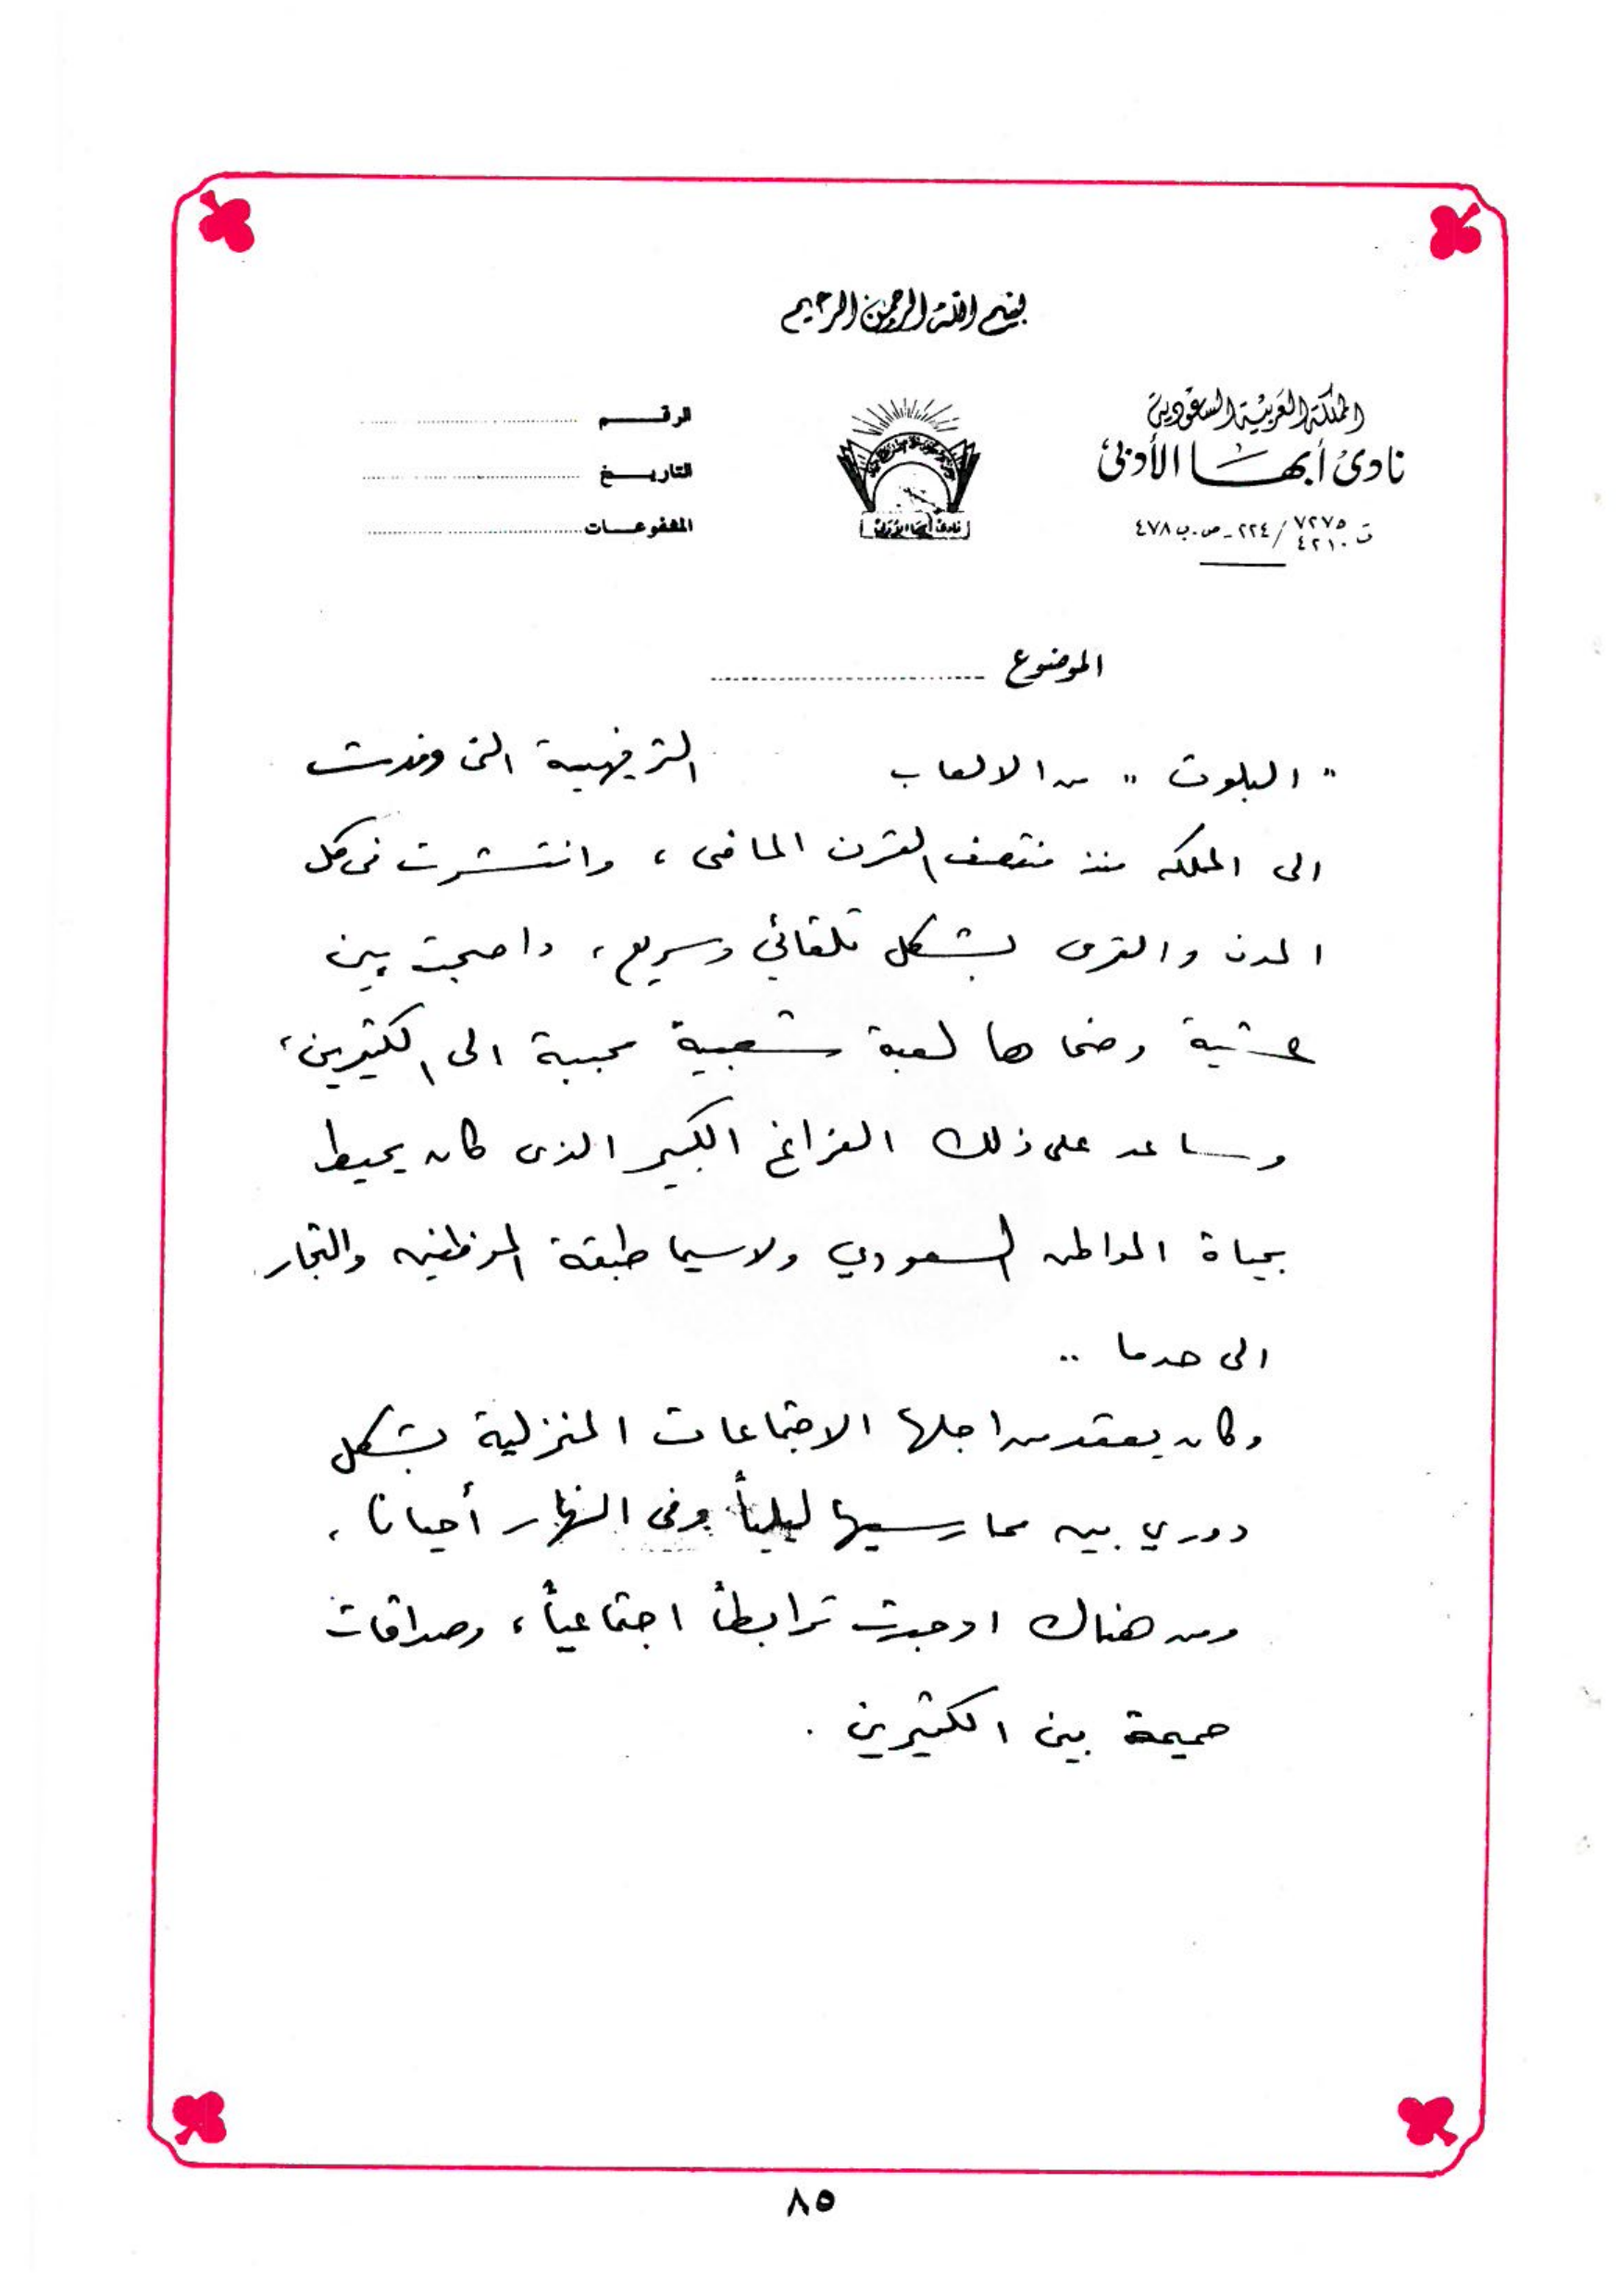 بسم الله الرحمن الرحيم
المملكة العربية السعودية
نادي أبها الأدبي
ت ٧٢٧٥ / ٢٢٤ - ص.ب ٤٧٨
٤٢١٠
الرقم
التاريخ
المشفوعات
نادي أبها الأدبي
الموضوع
" البلوت " من الالعاب الترفيهية التى وفدت
الى المملكه منذ منتصف القرن الماضى ، وانتشرت فى كل
المدن والقرى بشكل تلقائي وسريع ، واصبحت بين
عشية وضحاها لعبة شعبية محببة الى الكثيرين ،
وساعد على ذلك الفراغ الكبير الذى كان يحيط
بحياة المواطن السعودي ولاسيما طبقة الموظفين والتجار
الى حد ما ..
وكان يعقد من اجلها الاجتماعات المنزلية بشكل
دوري بين ممارسيها ليلياً وفى النهار أحيانا ،
ومن هناك اوجدت ترابطاً اجتماعياً ، وصداقات
حميمة بين الكثيرين .
٨٥